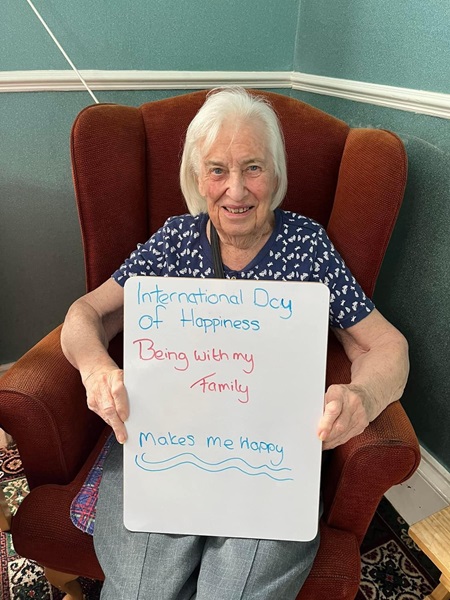 International Day
of Happiness
Being with my
Family
Makes me Happy